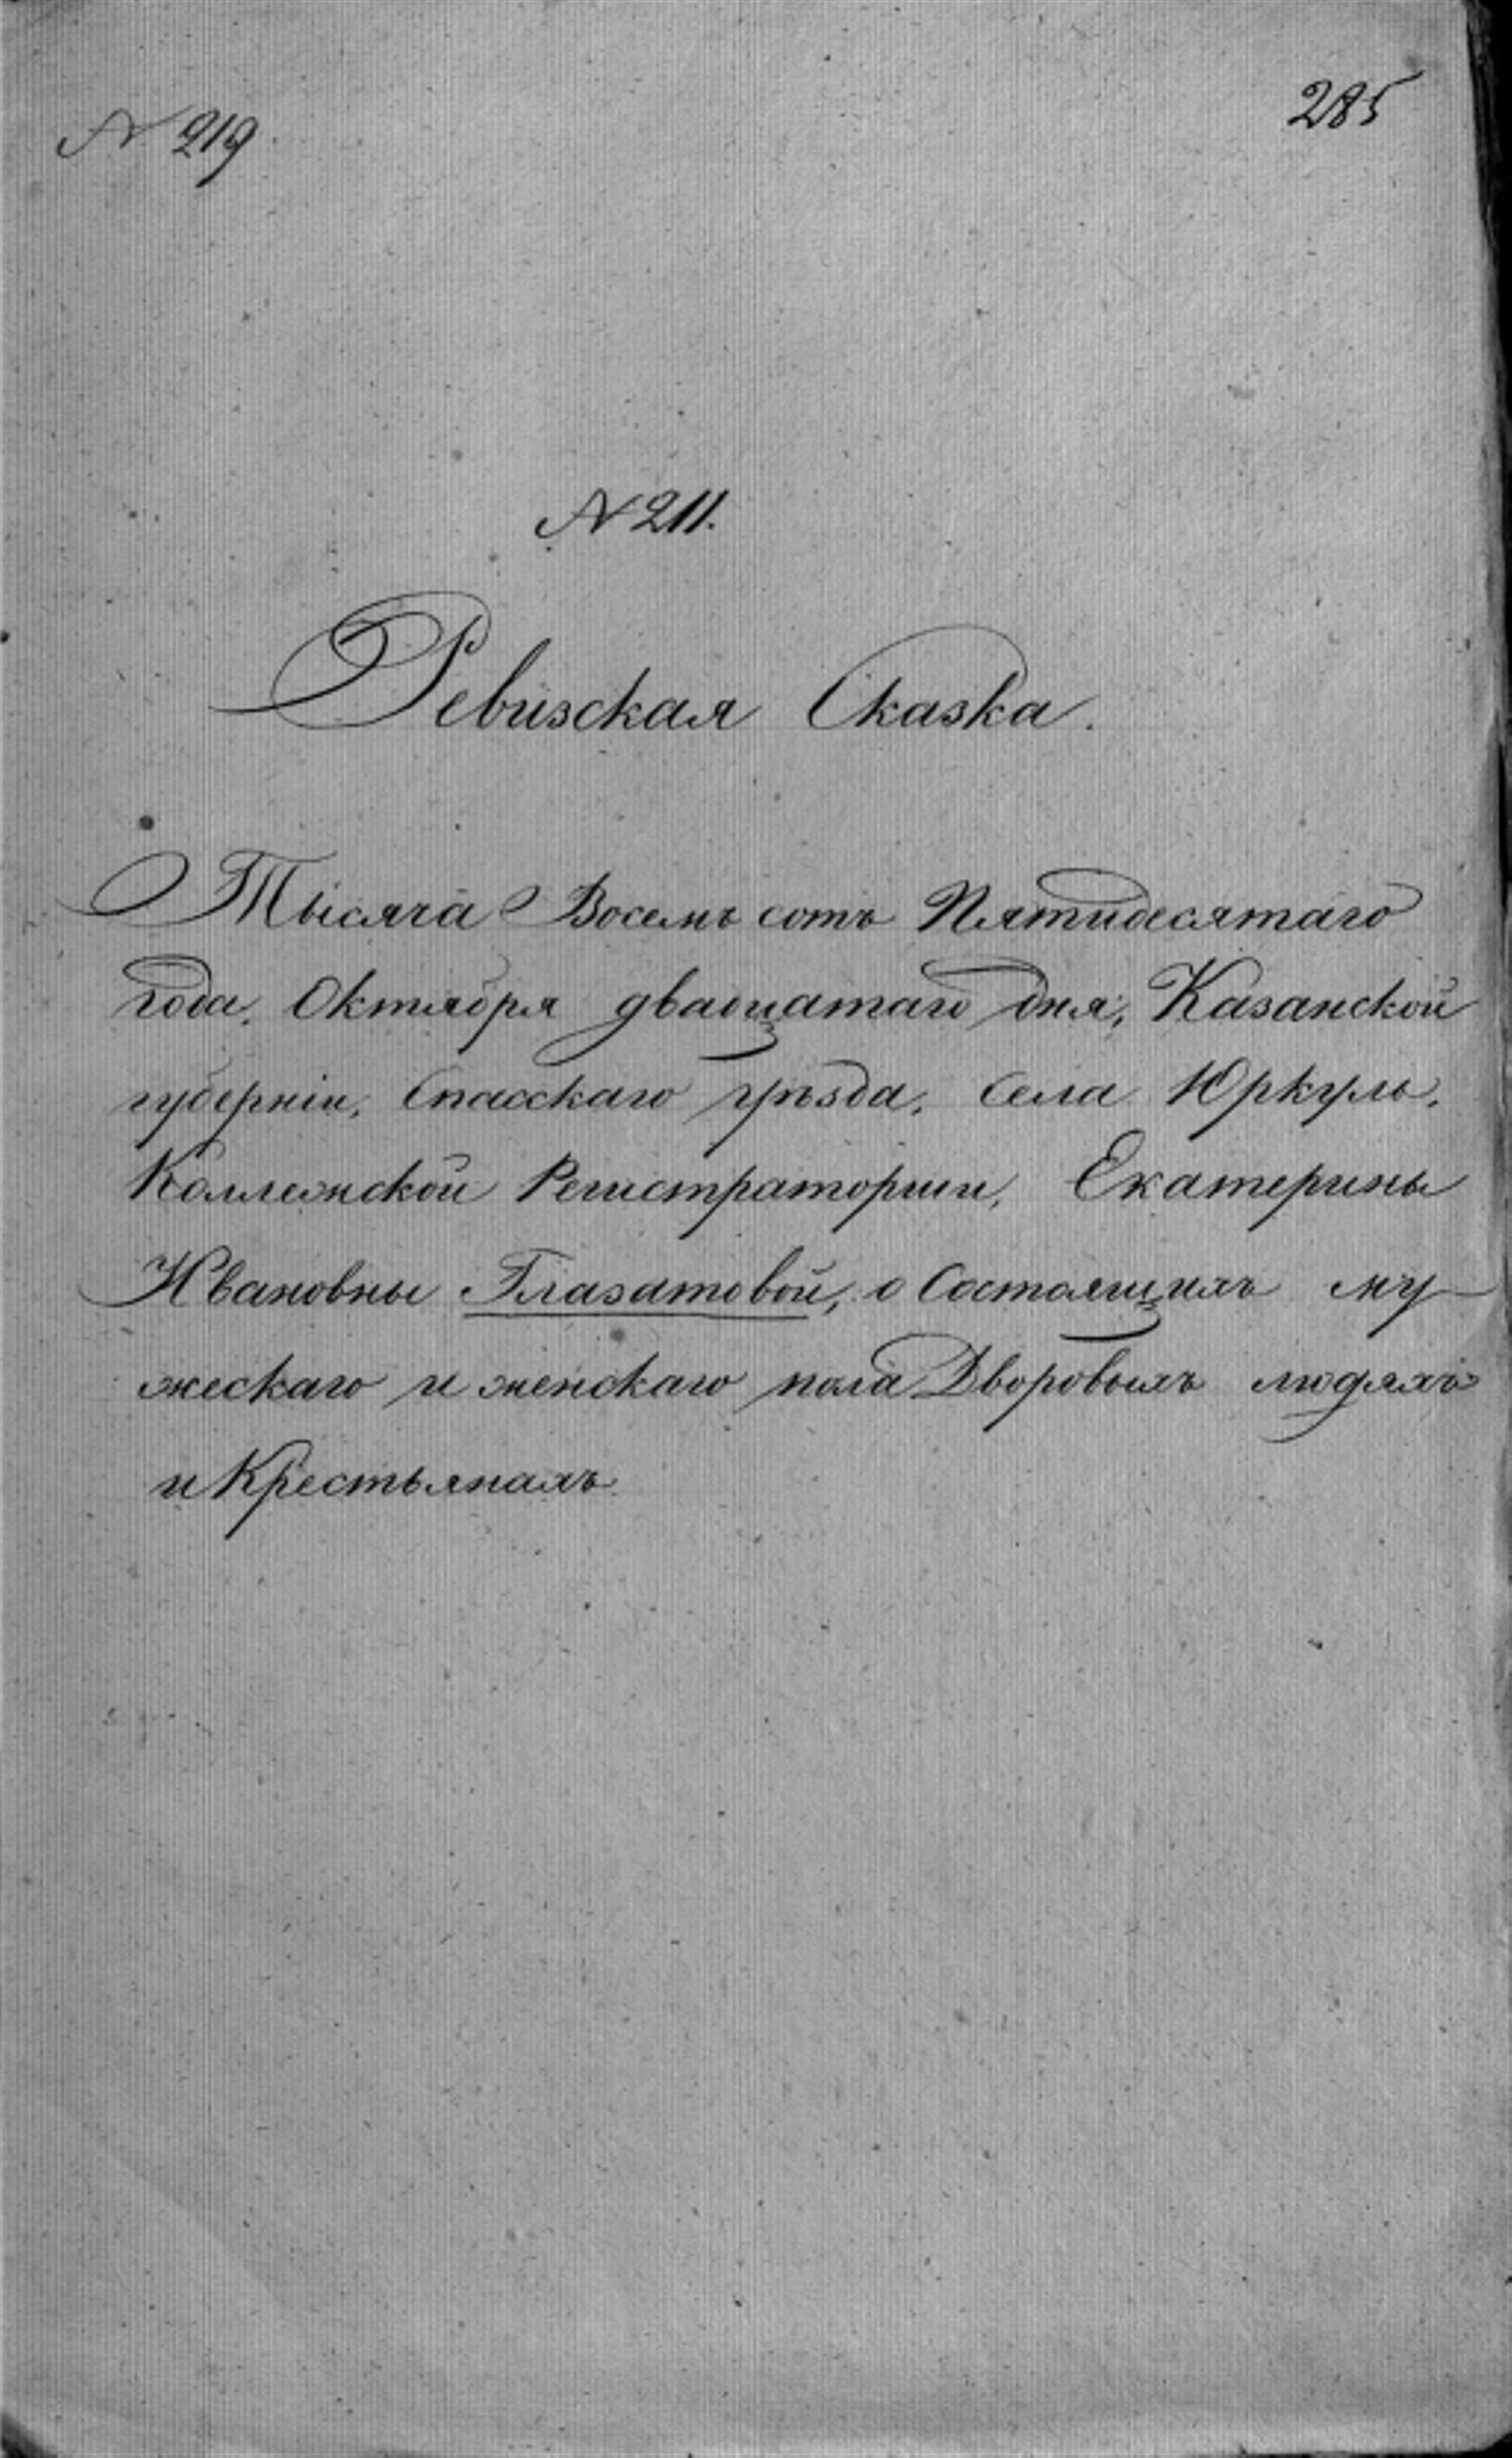 № 219
285
№ 211.
Ревизская Сказка.
Тысяча Восемь сотъ Пятидесятаго
года, Октября двадцатаго дня, Казанской
губерніи, Спасскаго уѣзда, села Юркуль,
Коллежской Регистраторши, Екатерины
Ивановны Глазатовой, о состоящихъ му-
жескаго и женскаго пола Дворовыхъ людяхъ
и Крестьянахъ